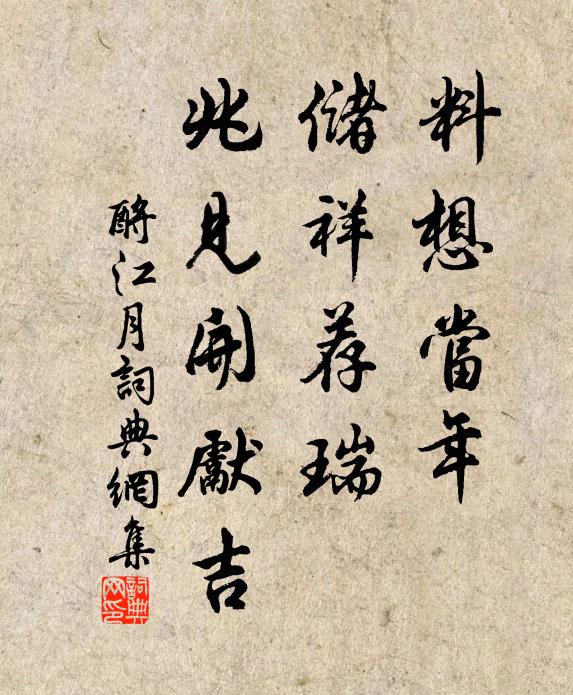 料想當年
儲祥荐瑞
兆見開獻吉
酹江月詞典網集
詞典網印